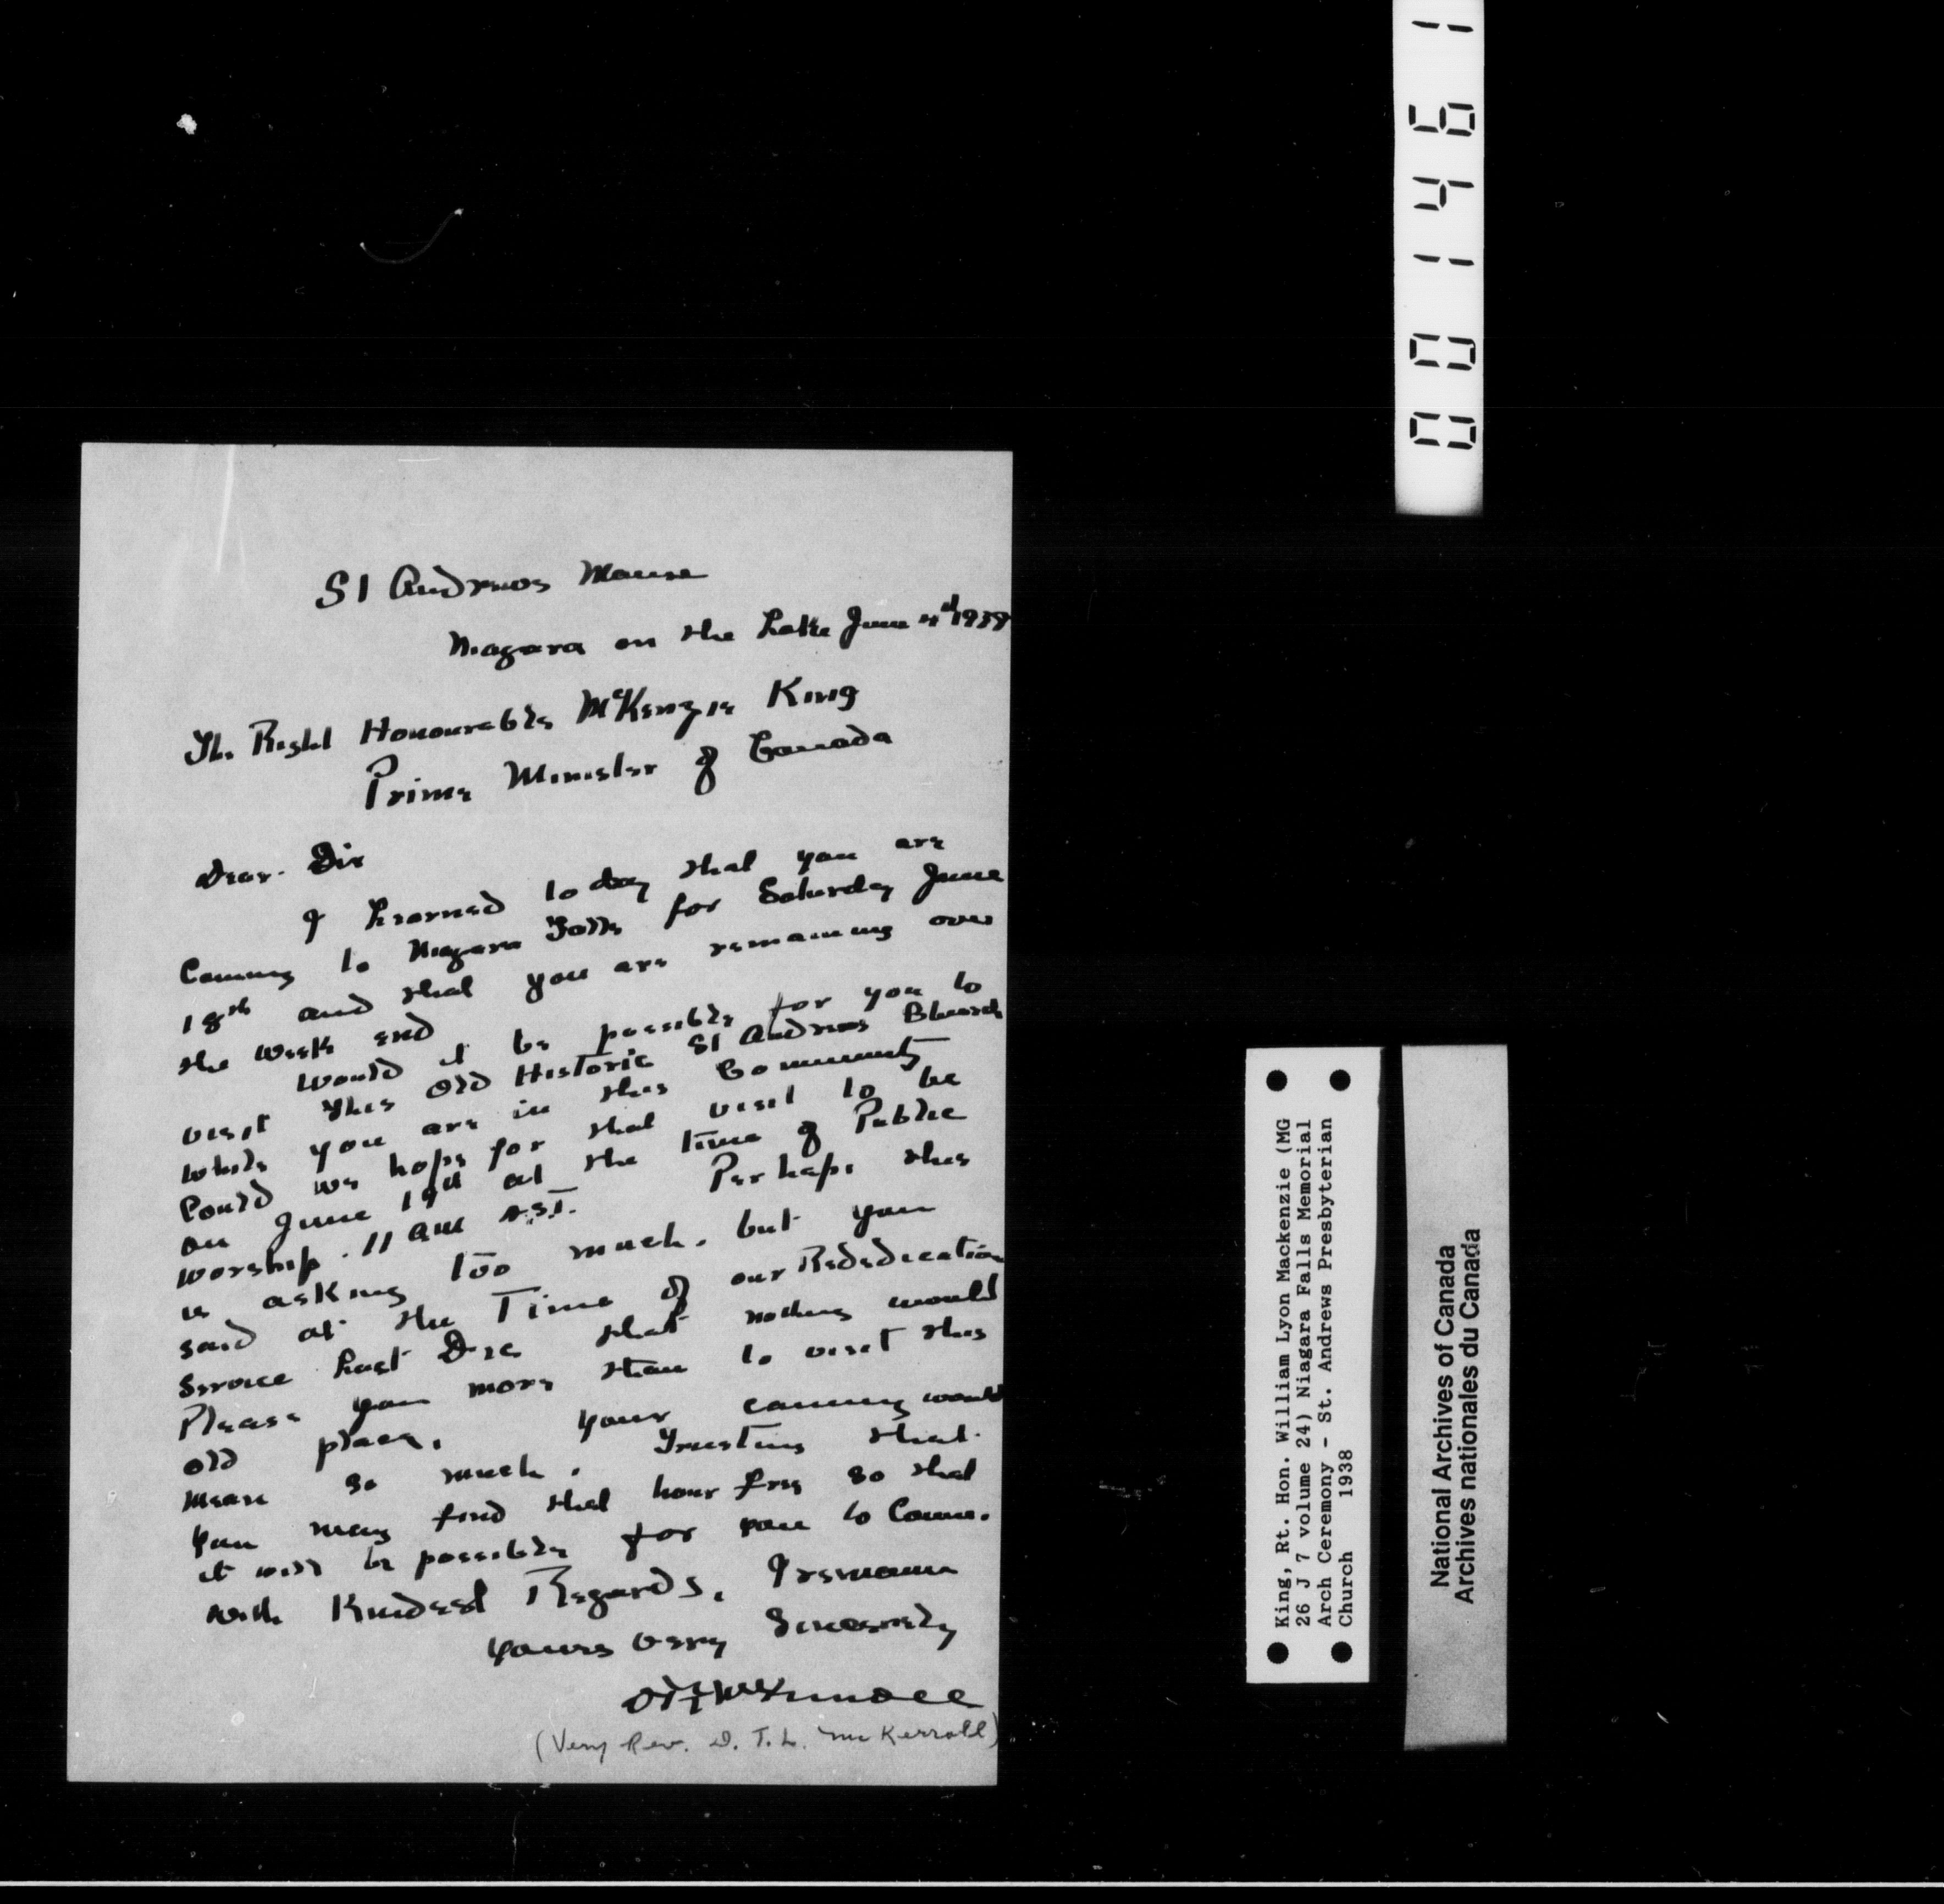 St Andrews Manse
Niagara on the Lake June 4th 1938
Th. Right Honourable McKenzie King
Prime Minister of Canada
Dear Sir
I learned today that you are
Coming to Niagara Falls for Saturday June
18th and that you are remaining over
the week end
Would it be possible for you to
visit this old Historic St Andrews Church
while you are in this Community
Could we hope for that visit to be
on June 19th at the time of Public
worship. 11 am
Perhaps this
is asking too much. but you
said at the Time of our Rededication
Service last Dec that nothing would
Please you more than to visit this
old place. Your coming would
mean so much. Trusting that
you may find that hour free so that
it will be possible for you to Come.
With Kindest Regards, I remain
Yours very Sincerely
(Very Rev. D. T. L. McKerroll)
001461
King, Rt. Hon. William Lyon Mackenzie (MG
26 J 7 volume 24) Niagara Falls Memorial
Arch Ceremony - St. Andrews Presbyterian
Church 1938
National Archives of Canada
Archives nationales du Canada